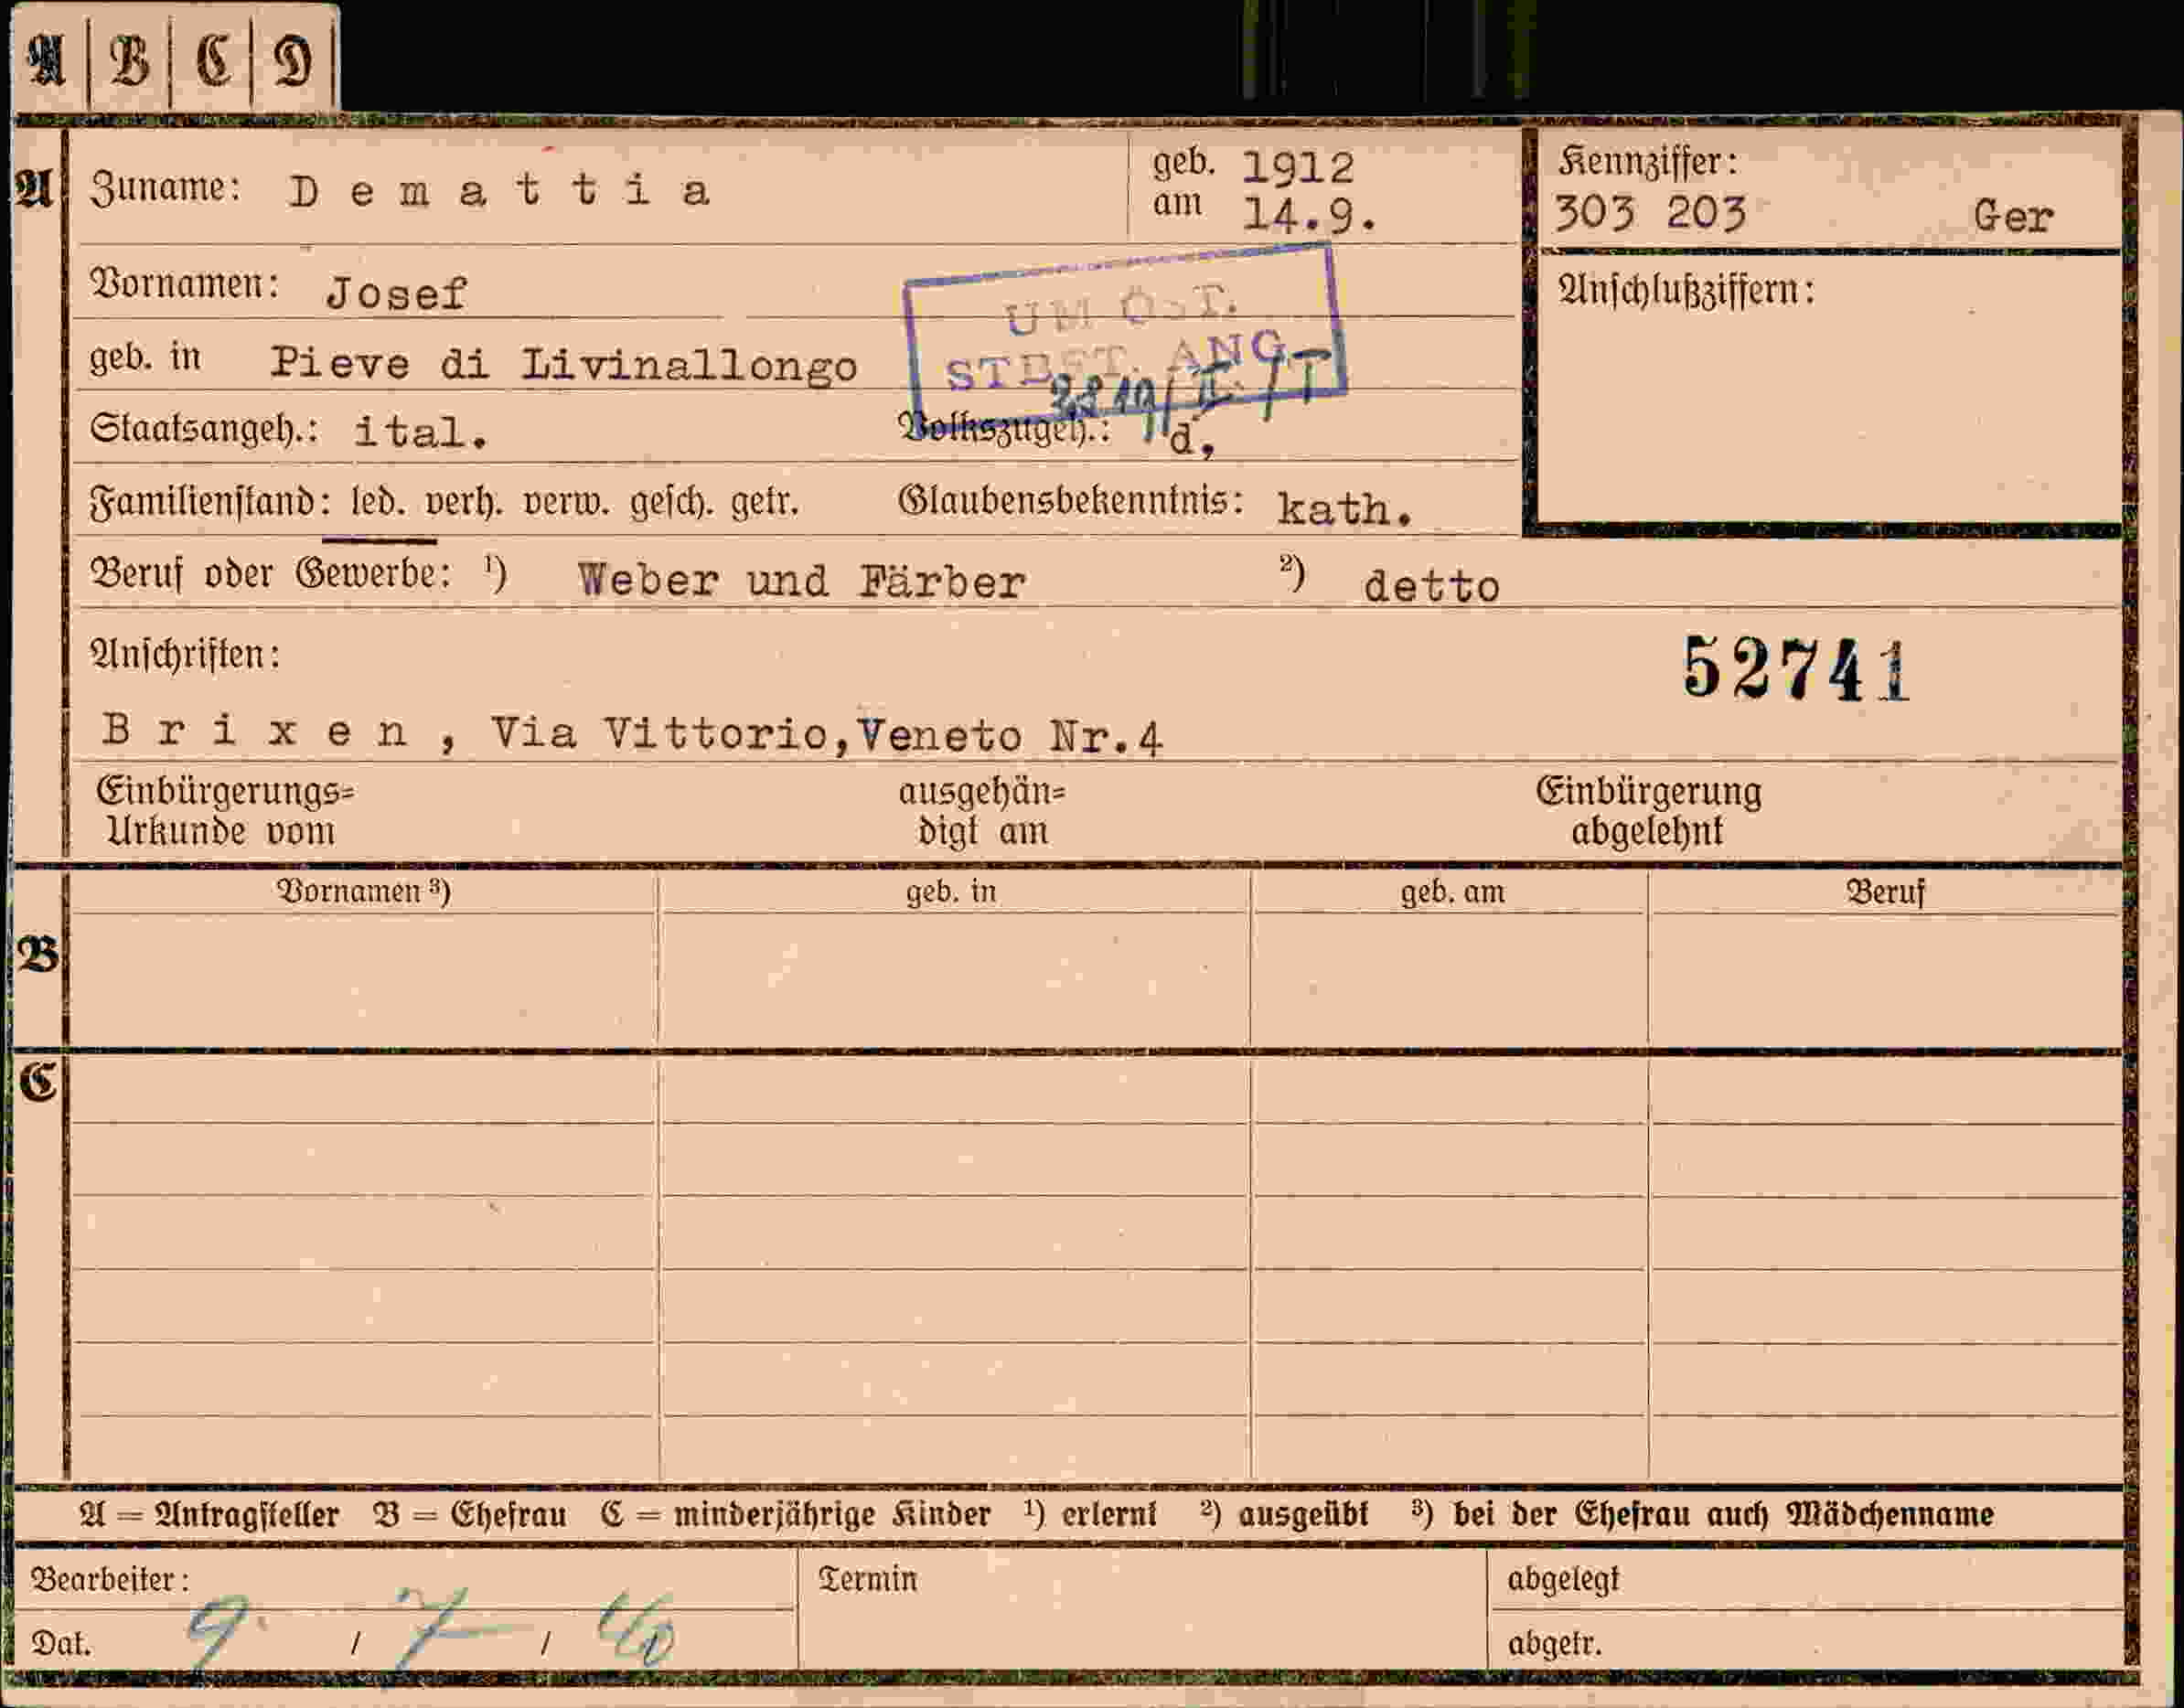 A B C D
A Zuname: Demattia geb. am 1912 14.9. Kennziffer: 303 203 Ger
Vornamen: Josef Anschlußziffern:
UM ÖST.
geb. in Pieve di Livinallongo
STBFT. ANG.
Staatsangeh.: ital. Volkszugeh.: d,
Familienstand: led. verh. verw. gesch. getr. Glaubensbekenntnis: kath.
Beruf oder Gewerbe: ¹) Weber und Färber ²) detto
Anschriften: 52741
Brixen, Via Vittorio,Veneto Nr.4
Einbürgerungs= ausgehän= Einbürgerung
Urkunde vom digt am abgelehnt
Vornamen ³) geb. in geb. am Beruf
B
C
A = Antragsteller B = Ehefrau C = minderjährige Kinder ¹) erlernt ²) ausgeübt ³) bei der Ehefrau auch Mädchenname
Bearbeiter: Termin abgelegt
Dat. 9. / 7 / 40 abgetr.